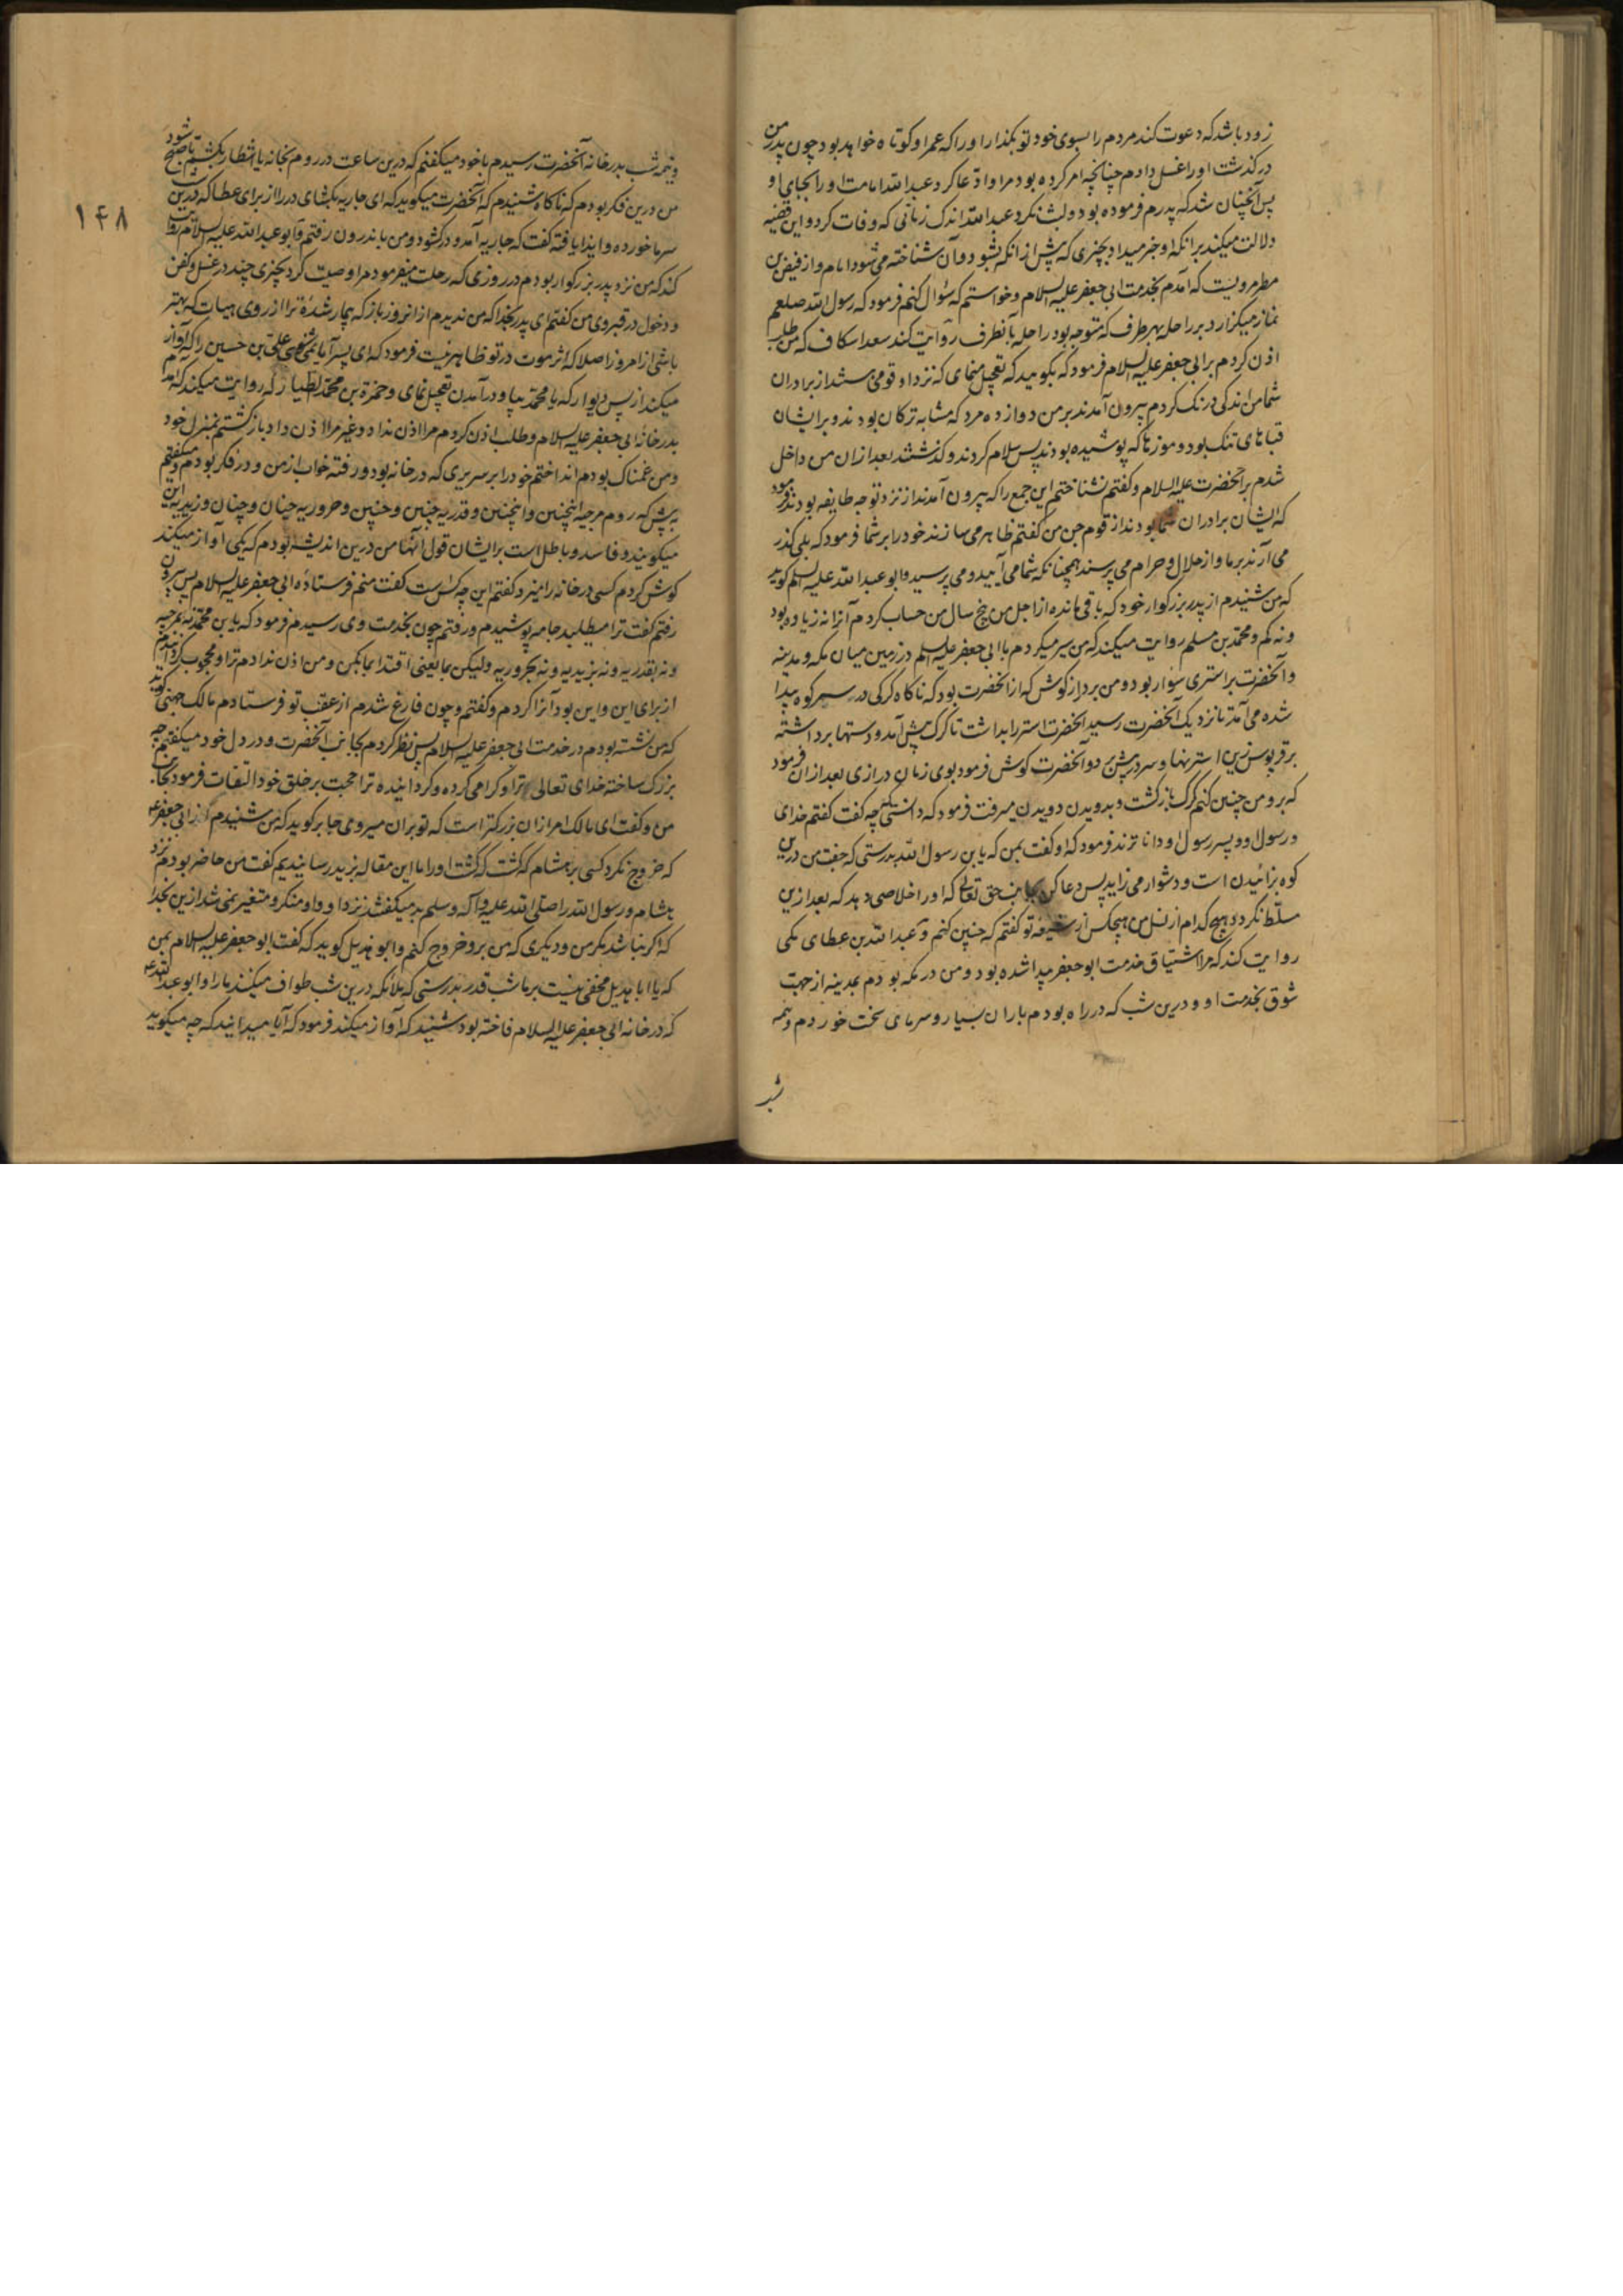 زود باشد که دعوت کند مردم را بسوی خود تو بگذار او را که عمر او کوتاه خواهد بود چون پدر من
درگذشت او را غسل دادم چنانچه امر کرده بود مرا و ادّعا کرد عبد الله امامت او را بجای او
پس آنچنان شد که پدرم فرموده بود و لبث نکرد عبد الله اندک زمانی که وفات کرد و این قضیه
دلالت میکند بر آنکه او خبر میداد بچیزی که پیش از آنکه بشود و آن شناخته می شود امام و از فیض بن
مطر مرویست که آمدم بخدمت ابی جعفر علیه السلام و خواستم که سؤال کنم فرمود که رسول الله صلعم
نماز میگزارد بر راحله بهر طرف که متوجه بود راحله بآنطرف روایت کند سعد اسکاف که من طلب
اذن کردم بر ابی جعفر علیه السلام فرمود که بگویید که تعجیل منمای که نزد او قومی هستند از برادران
شما من اندکی درنگ کردم بیرون آمدند بر من دوازده مرد که مشابه ترکان بودند و بر ایشان
قباهای تنک بود و موزها که پوشیده بودند پس سلام کردند و گذشتند بعد از آن من داخل
شدم بر آنحضرت علیه السلام و گفتم نشناختم این جمع را که بیرون آمدند از نزد تو چه طایفه بودند فرمود
که ایشان برادران شما بودند از قوم جن من گفتم ظاهر می سازند خود را بر شما فرمود که بلی گذر
می آرند بر ما و از حلال و حرام می پرسند همچنانکه شما می آیید و می پرسید و ابو عبد الله علیه السلم گوید
که من شنیدم از پدر بزرگوار خود که باقی مانده از اجل من پنج سال من حساب کردم آنرا نه زیاده بود
و نه کم و محمّد بن مسلم روایت میکند که من سیر میکردم با ابی جعفر علیه السلم در زمین میان مکه و مدینه
و آنحضرت بر استری سوار بود و من بر دراز گوش که از آنحضرت بود که ناگاه گرگی در سر کوه پیدا
شده می آمد تا نزدیک آنحضرت رسید آنحضرت استر را بداشت تا گرگ پیش آمد و دستها برداشته
بر قرپوس زین استر نهاد و سر در پیش برد و آنحضرت گوش فرمود بوی زمان درازی بعد از آن فرمود
که برو من چنین کنم گرگ بازگشت و بدویدن دویدن میرفت فرمود که دانستی که چه گفت گفتم خدای
و رسول او و پسر رسول او داناترند فرمود که او گفت بمن که یا بن رسول الله بدرستی که جفت من درین
کوه بزائیدن است و دشوار می زاید پس دعا کن بجانب حق تعالی که او را خلاصی دهد که بعد ازین
مسلّط نکردد هیچ کدام از نسل من بهیچکس از شیعه تو گفتم که چنین کنم و عبد الله بن عطای مکی
روایت کند که مرا اشتیاق خدمت ابو جعفر پیدا شده بود و من در مکه بودم بمدینه از جهت
شوق بخدمت او و درین شب که در راه بودم باران بسیار و سرمای سخت خوردم و نیمه
شب
۱۴۸
و نیمه شب بدر خانه آنحضرت رسیدم با خود میگفتم که درین ساعت در روم بخانه یا انتظار بکشم تا صبح شود
من درین فکر بودم که ناگاه شنیدم که آنحضرت میگوید که ای جاریه بگشای در را از برای عطا که درین شب
سرما خورده و ایذا یافته گفت که جاریه آمد و در گشود و من باندرون رفتم و ابو عبد الله علیه السلام روایت
کند که من نزد پدر بزرگوار بودم در روزی که رحلت میفرمود مرا وصیت کرد بچیزی چند در غسل و کفن
و دخول در قبر وی من گفتم ای پدر بخدا که من ندیدم از آنروز باز که بیمار شدهٔ ترا از روی هیات که بهتر
باشی از امروز اصلا که اثر موت در تو ظاهر نیست فرمود که ای پسر آیا نمی شنوی علی بن حسین را که آواز
میکند از پس دیوار که یا محمّد بیا و در آمدن تعجیل نمای و حمزة بن محمّد الطیار که روایت میکند که آمدم
بدر خانه ابی جعفر علیه السلام و طلب اذن کردم مرا اذن نداد و غیر مرا اذن داد باز گشتم بمنزل خود
و من غمناک بودم انداختم خود را بر سریری که در خانه بود و رفته خواب از من و در فکر بودم و میگفتم
به پیش که روم مرجیه اینچنین و اینچنین و قدریه چنین و چنین و حروریه چنان و چنان و زیدیه این
میگویند و فاسد و باطل است بر ایشان قول آنها من درین اندیشه بودم که یکی آواز میکند
گوش کردم کسی در خانه را میزد گفتم این چه کس است گفت منم فرستاده ابی جعفر علیه السلام پس بیرون
رفتم گفت ترا میطلبد جامه پوشیدم و رفتم چون بخدمت وی رسیدم فرمود که یا بن محمّد نه بمرجیه
و نه بقدریه و نه بزیدیه و نه بحروریه و لیکن بما یعنی اقتدا بما بکن و من اذن ندادم ترا و محجوب گردانیدم
از برای این و این بود آنرا کردم و گفتم و چون فارغ شدم از عقب تو فرستادم مالک جهنی گوید
که من نشسته بودم در خدمت ابی جعفر علیه السلام پس نظر کردم بجانب آنحضرت و در دل خود میگفتم که چه
بزرگ ساخته خدای تعالی ترا و گرامی کرده و گردانیده ترا حجت بر خلق خود التفات فرمود بجانب
من و گفت ای مالک امر از آن بزرگتر است که تو بر آن میروی جابر گوید که من شنیدم از ابی جعفر ع
که خروج نکرد کسی بر هشام که گشت که گشت او را ما این مقاله بزید رسانیدیم گفت من حاضر بودم نزد
هشام و رسول الله را صلی الله علیه و آله و سلم بد میگفتند نزد او و او منکر و متغیر نمی شد ازین بخدا
که اگر نباشد مگر من و دیگری که من برو خروج کنم و ابو هذیل گوید که گفت ابو جعفر علیه السلام بمن
که یا ابا هذیل مخفی نیست بر ما شب قدر بدرستی که ملائکه درین شب طواف میکنند ما را و ابو عبد الله ع
که در خانه ابی جعفر علیه السلام فاخته بود شنید که آواز میکند فرمود که آیا میدانید که چه میگوید